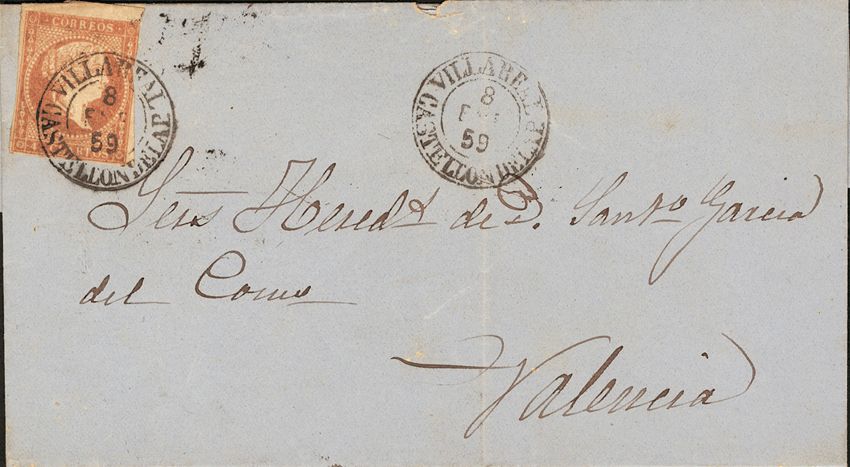 CORREOS
VILLAREAL
8
59
CASTELLON DE LA P.
VILLAREAL
8
59
CASTELLON DE LA P.
Señs Hered.s de D. Santo Garcia
del
Valencia